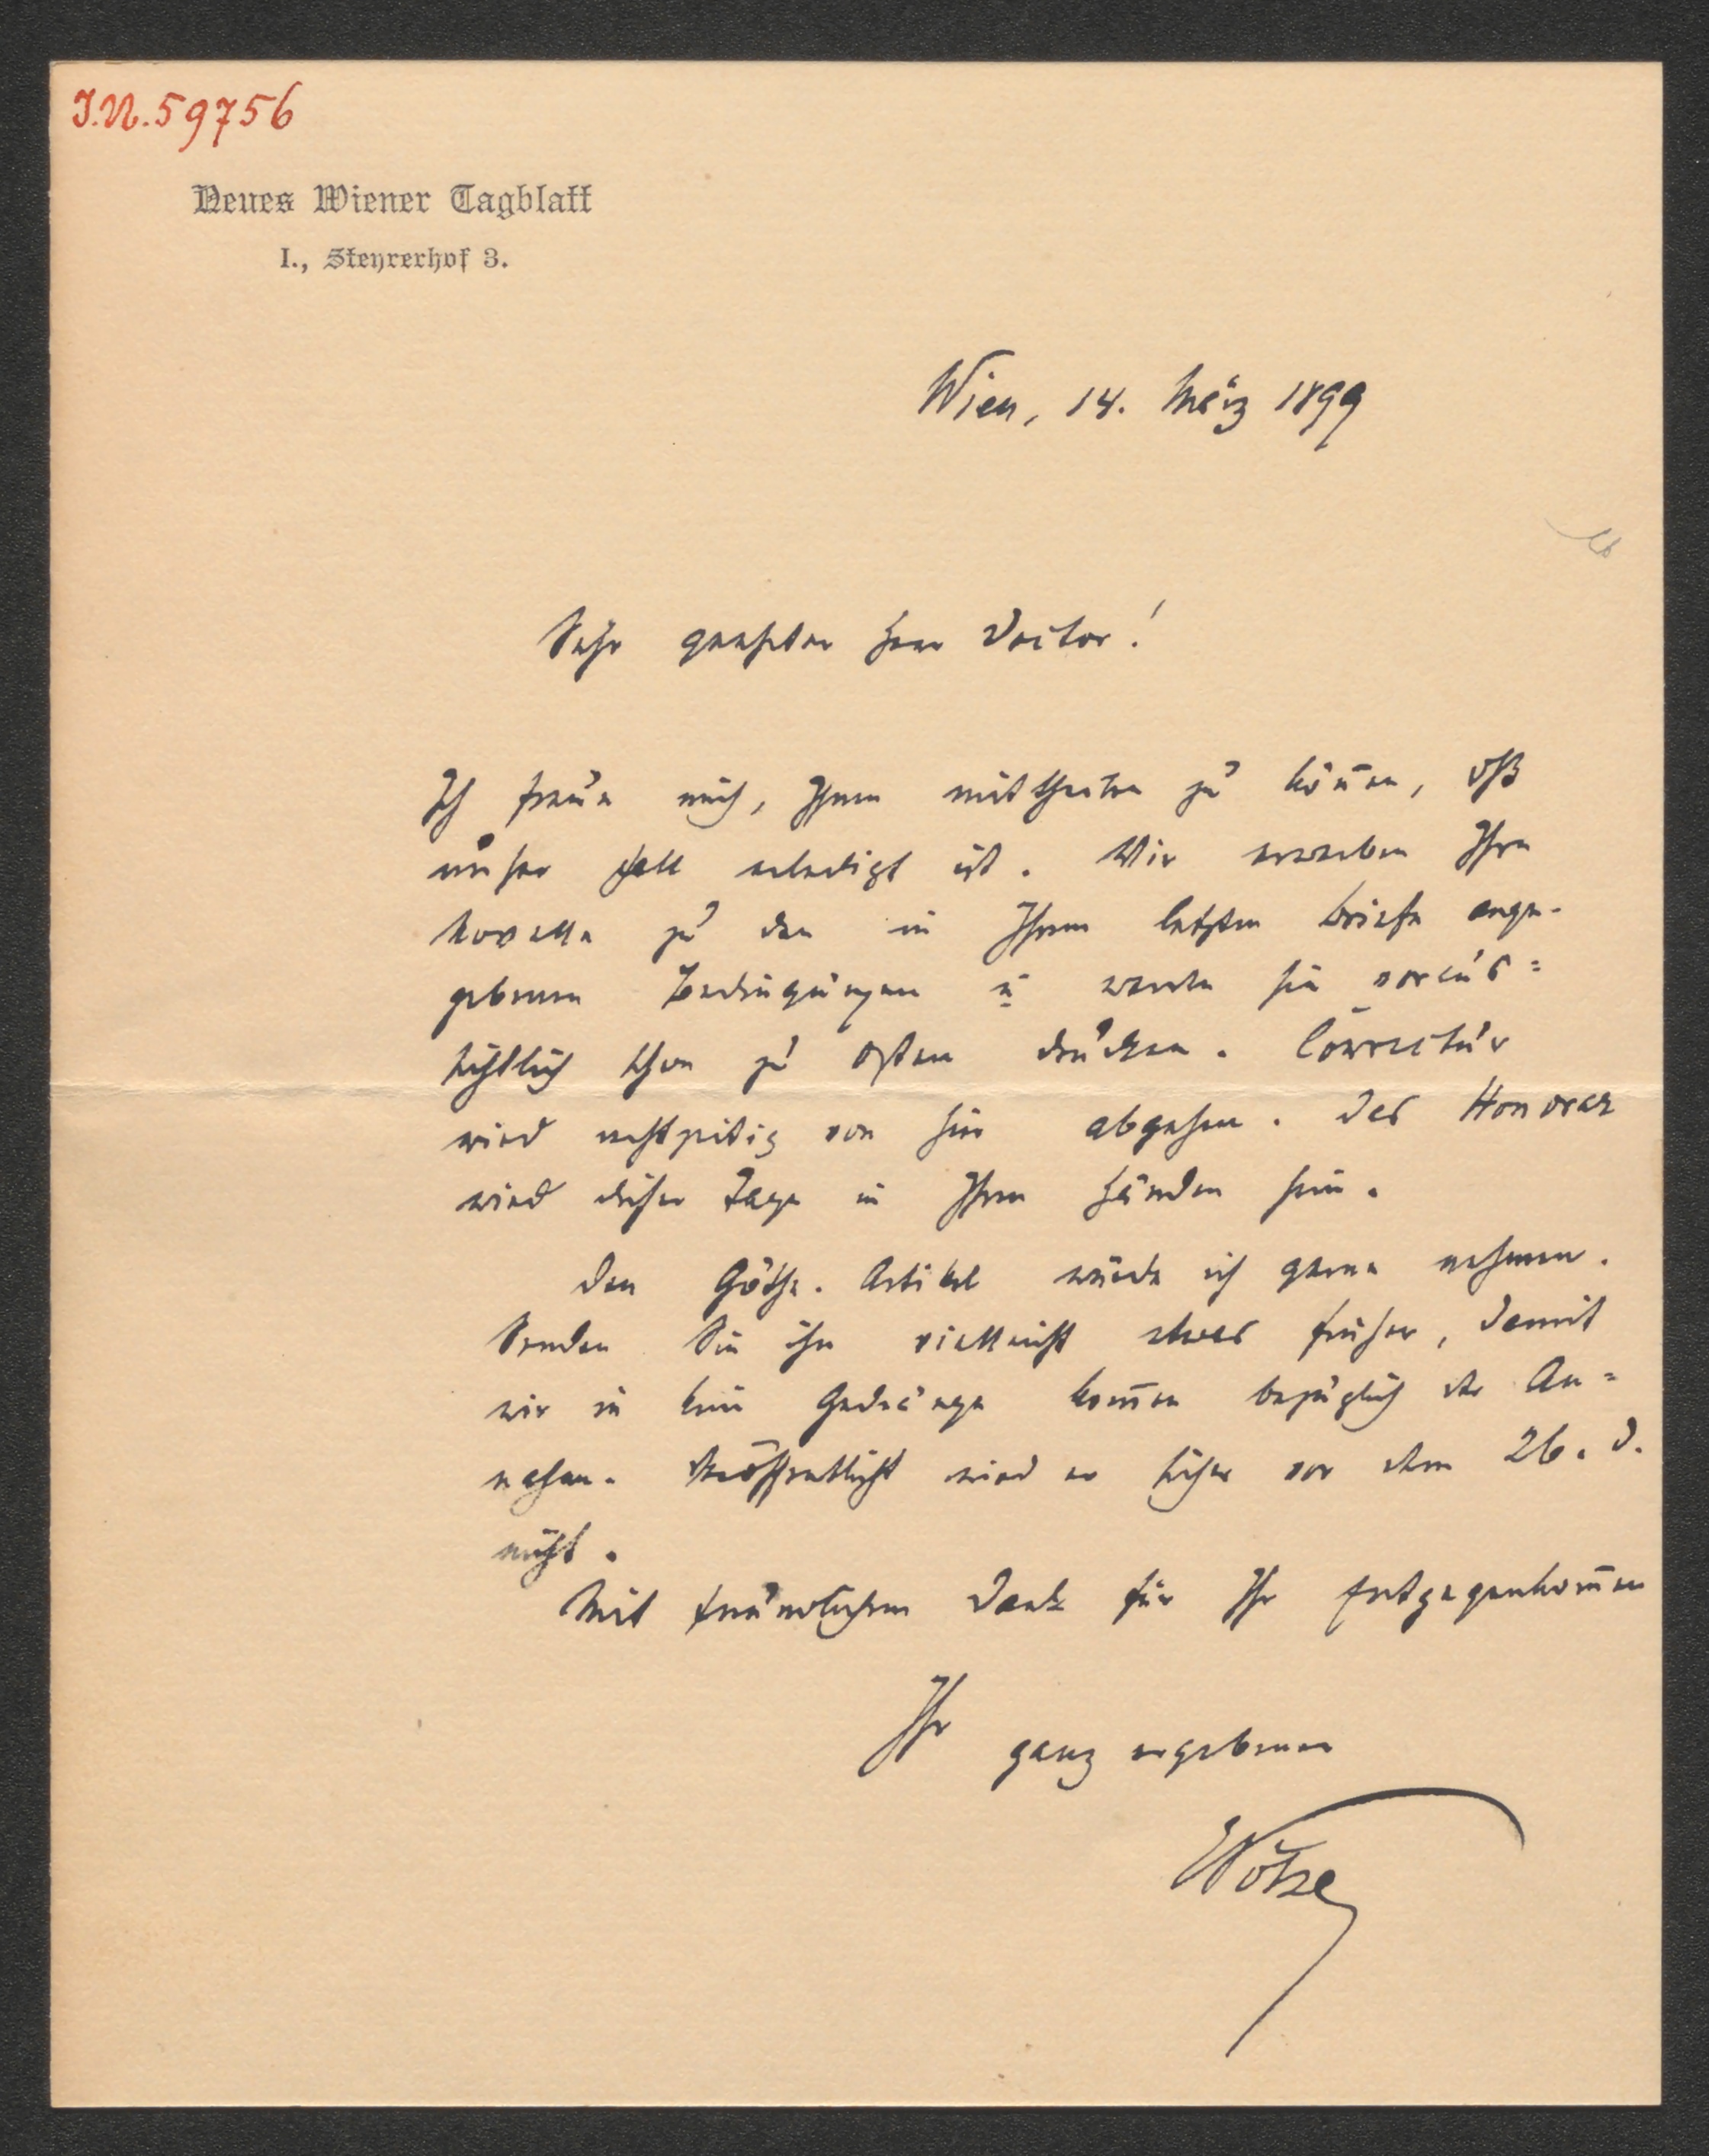 I.N. 59756
Neues Wiener Tagblatt
I., Steyrerhof 3.
Wien, 14. März 1899
Sehr geehrter Herr Doctor!
Ich freue mich, Ihnen mittheilen zu kön̄en, dß
unser Fall erledigt ist. Wir erwerben Ihre
Novelle zu den in Ihrem letzten Briefe ange-
gebenen Bedingungen u werden sie voraus=
sichtlich schon zu Ostern drucken. Correctur
wird rechtzeitig von hier abgehen. Das Honorar
wird dieser Tage in Ihren Händen sein.
Den Göthe-Artikel würde ich gerne nehmen.
Senden Sie ihn vielleicht etwas früher, damit
wir in kein Gedränge kom̄en bezüglich der An=
nahme. Veröffentlicht wird er sicher vor dem 26. d.
nicht.
Mit freundlichem Dank für Ihr Entgegenkom̄en
Ihr
ganz ergebener